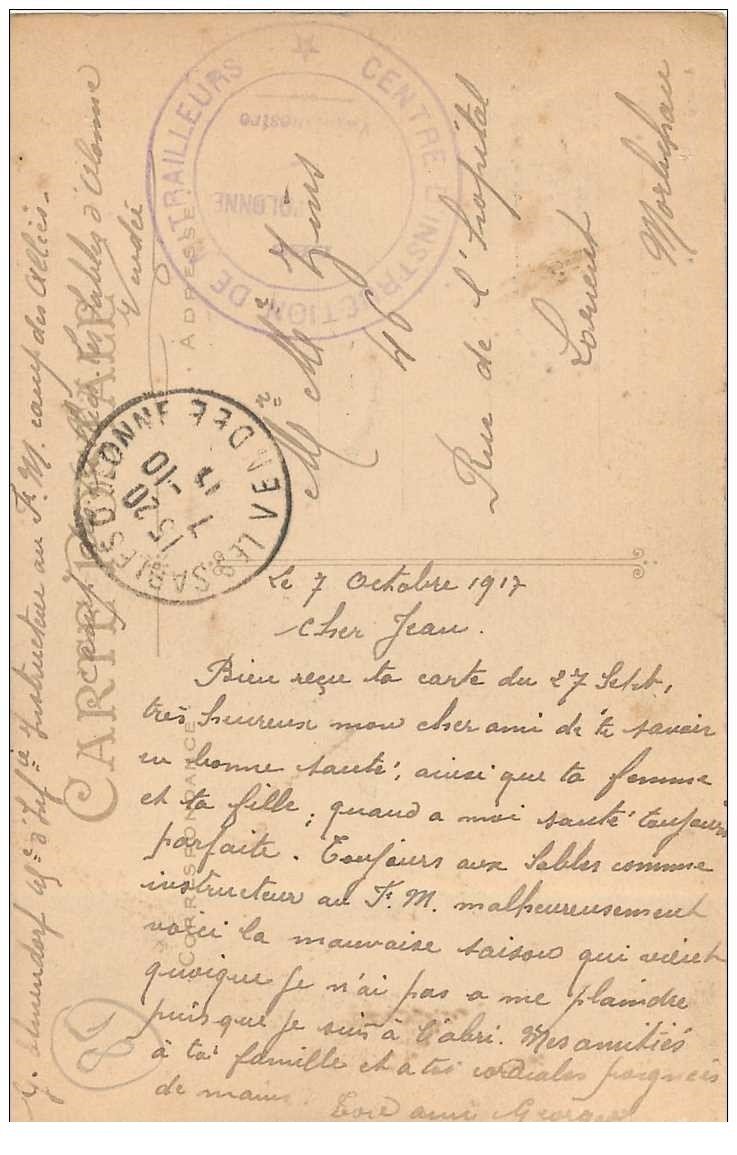 CARTE POSTALE
CORRESPONDANCE
ADRESSE
CENTRE D'INSTRUCTION DE MITRAILLEURS
OLONNE
LES SABLES D'OLONNE VENDEE
15 20
7 - 10
17
Mr Mr
46
Rue de l'hopital
Lorient
Morbihan
Le 7 Octobre 1917
Cher Jean.
Bien reçu ta carte du 27 Sept,
très heureux mon cher ami de te savoir
en bonne santé, ainsi que ta femme
et ta fille; quand a moi santé toujours
parfaite. Toujours aux Sables comme
instructeur au F. M. malheureusement
voici la mauvaise saison qui vient
quoique je n'ai pas a me plaindre
puisque je suis à l'abri. Mes amitiés
à ta famille et a toi cordiales poignées
de mains. Ton ami Georges
Instructeur au F. M. camp des Alliés.
Les Sables d'Olonne
Vendée
18